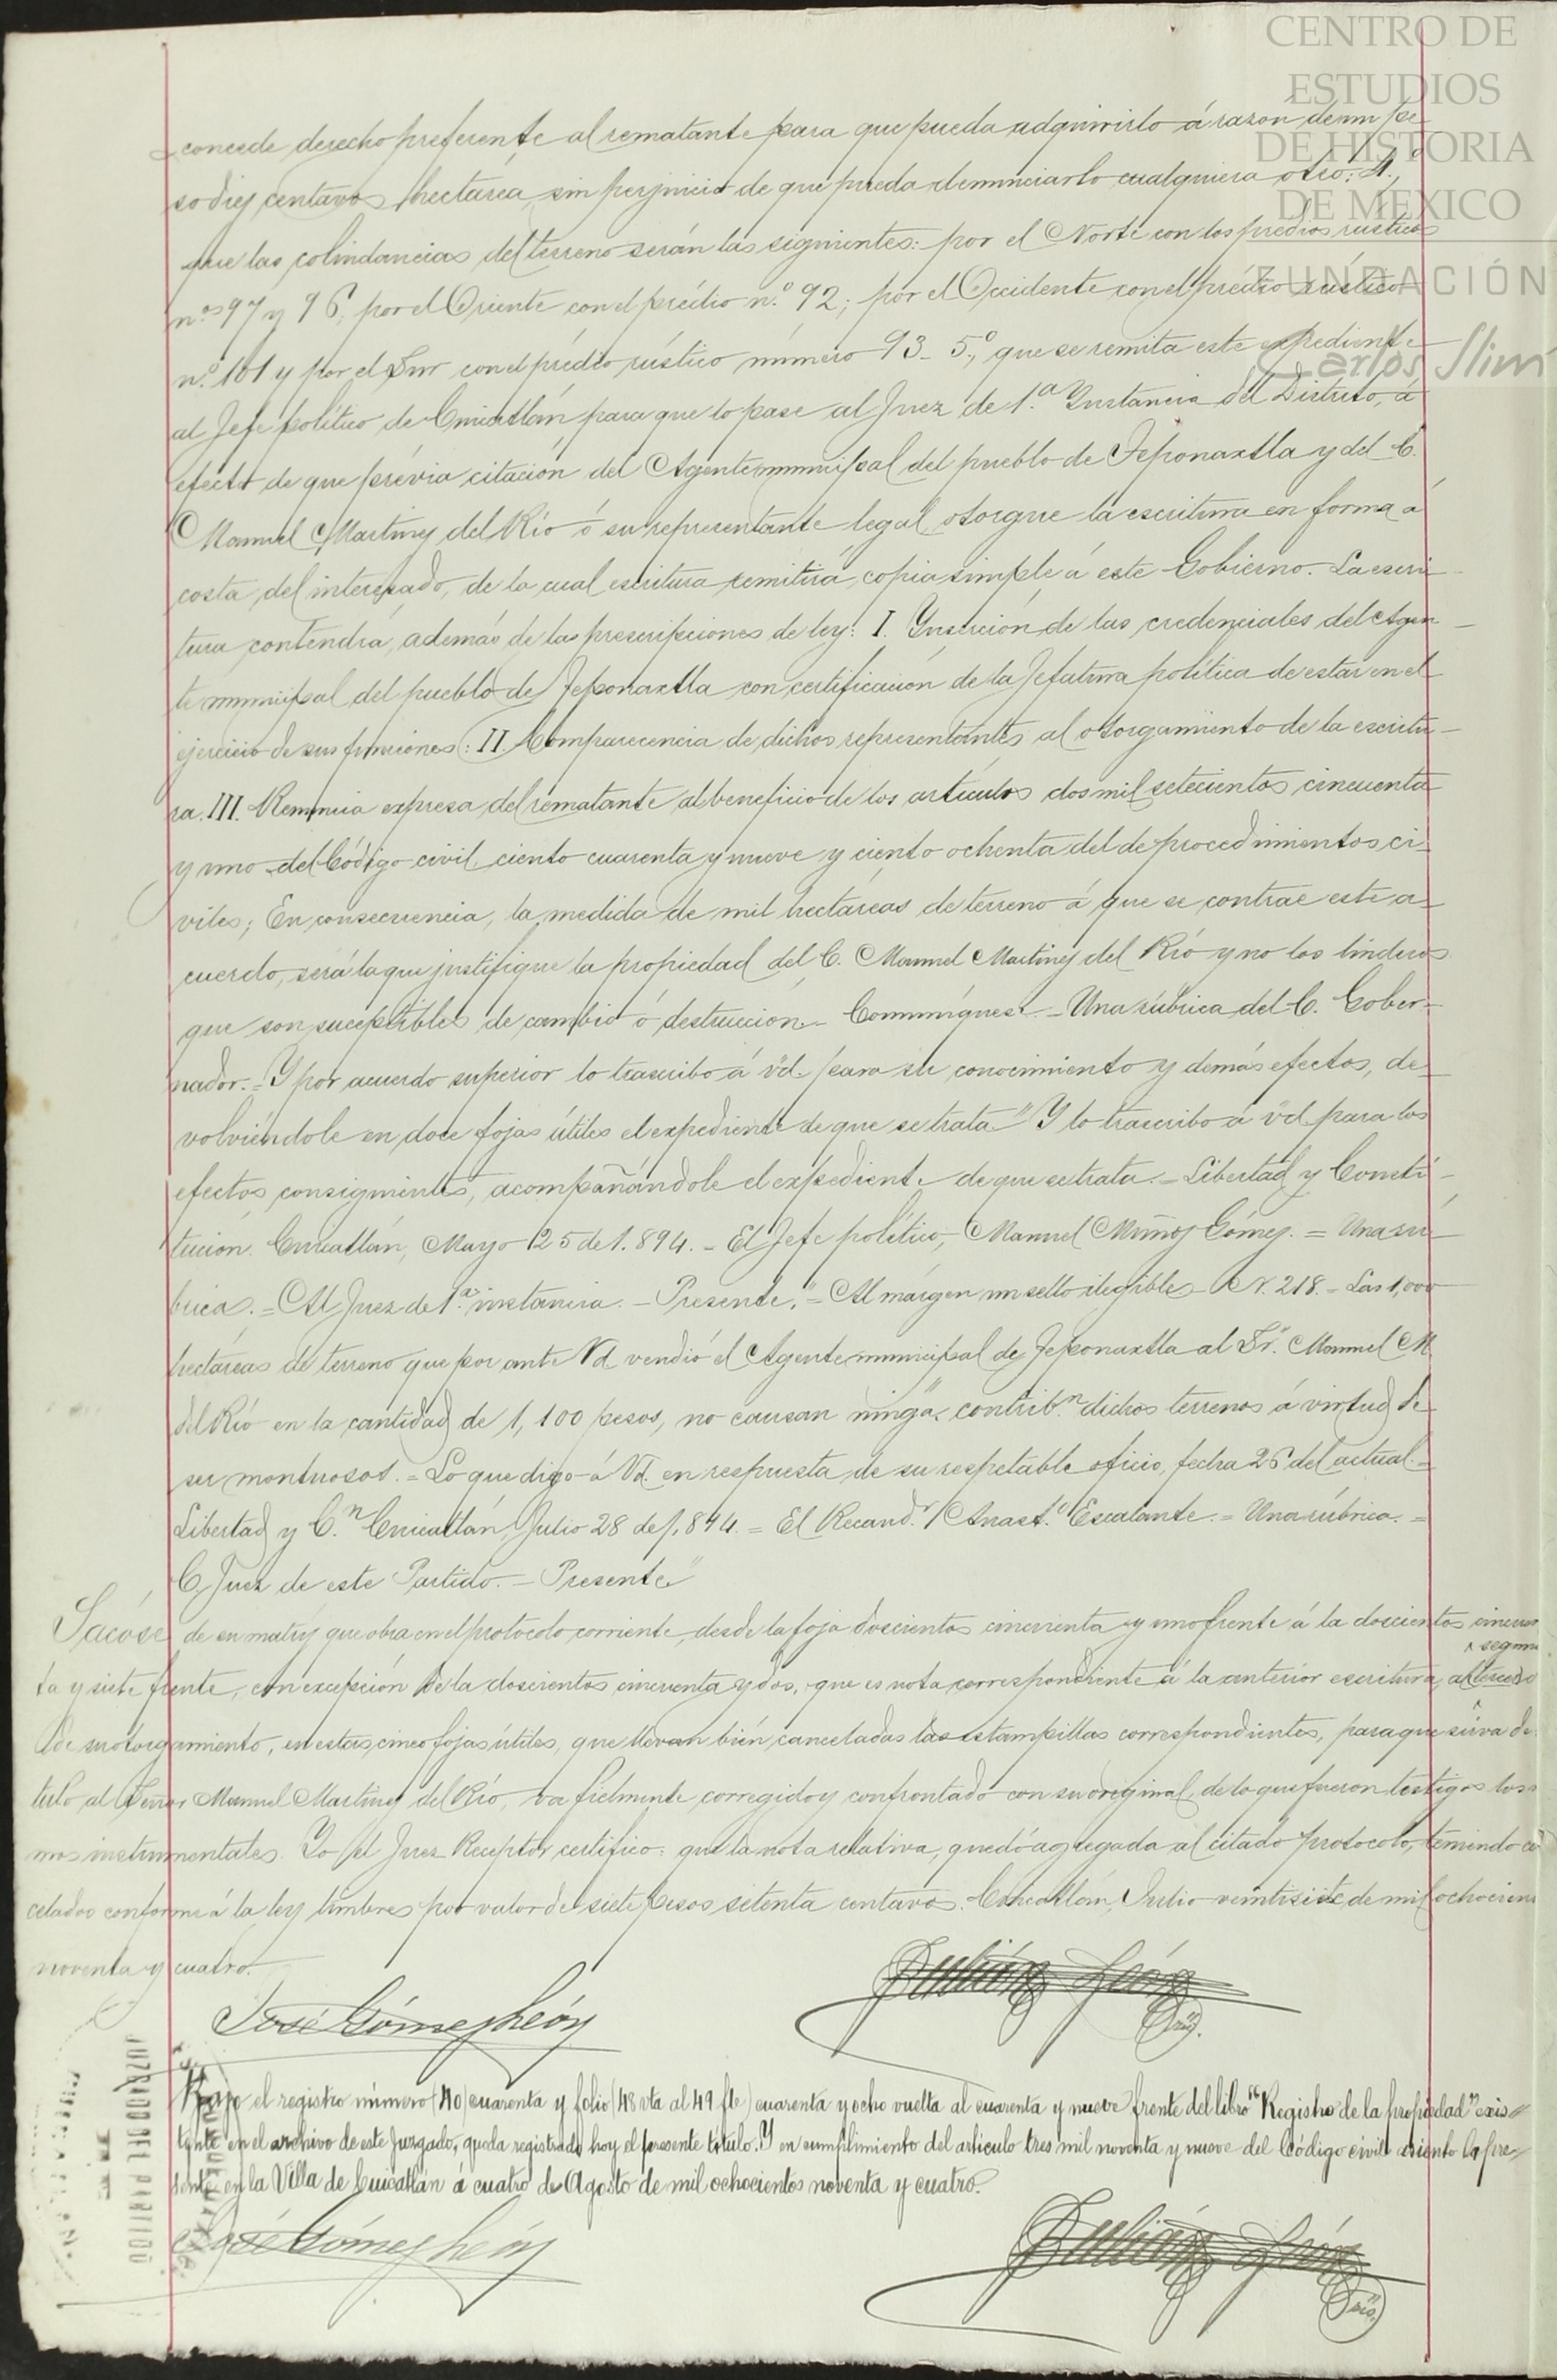 CENTRO DE
ESTUDIOS
DE HISTORIA
DE MÉXICO
FUNDACIÓN
Carlos Slim
concede derecho preferente al rematante para que pueda adquirirlo á razon de un pe
so diez centavos hectárea, sin perjuicio de que pueda denunciarlo cualquiera otro: 4.º,
que las colindancias del terreno serán las siguientes: por el Norte con los predios rústicos
n.os 97 y 96, por el Oriente con el prédio n.º 92; por el Occidente con el prédio rústico
n.º 101 y por el Sur con el prédio rústico número 93- 5.º, que se remita este expediente
al Jefe político de Cuicatlán para que lo pase al Juez de 1.a Ynstancia del Distrito, á
efecto de que prévia citación del Agente municipal del pueblo de Teponaxtla y del C.
Manuel Martinez del Río ó su representante legal, otorgue la escritura en forma á
costa del interesado, de la cual escritura remitirá copia simple á este Gobierno. La escri
tura contendrá, además de las prescripciones de ley: I. Ynserción de las credenciales del Agen
te municipal del pueblo de Teponaxtla con certificación de la Jefatura política de estar en el
ejercicio de sus funciones: II. Comparecencia de dichos representantes al otorgamiento de la escritu-
ra. III. Renuncia expresa del rematante al beneficio de los artículos dos mil setecientos cincuenta
y uno del Código civil, ciento cuarenta y nueve y ciento ochenta del de procedimientos ci-
viles; En consecuencia, la medida de mil hectáreas de terreno á que se contrae este a-
cuerdo, será la que justifique la propiedad del C. Manuel Martinez del Río y no los linderos
que son suceptibles de cambio ó destrucción.- Comuníquese.- Una rúbrica del C. Gober-
nador.- Y por acuerdo superior lo trascribo á vd. para su conocimiento y demás efectos, de-
volviéndole en doce fojas útiles el expediente de que se trata" Y lo trascribo á vd para los
efectos consiguientes, acompañándole el expediente de que se trata.- Libertad y Consti-
tución. Cuicatlán, Mayo 25 de 1.894.- El Jefe político, Manuel Muñoz Gómez. = Una rú-
brica. = Al Juez de 1.a instancia.- Presente."- Al márgen un sello ilegible- N. 218.- Las 1,000
hectáreas de terreno que por ante Vd. vendió el Agente municipal de Teponaxtla al Sr. Manuel M.
del Río en la cantidad de 1,100 pesos, no causan ninga. contrib.n dichos terrenos á virtud de
ser montuosos. = Lo que digo á Vd. en respuesta de su respetable oficio, fecha 26 del actual.-
Libertad y C.n Cuicatlán, Julio 28 de 1,894. = El Recaud.r Anast.o Escalante.= Una rúbrica.=
C. Juez de este Partido.- Presente"
Sacóse de su matriz que obra en el protocolo corriente, desde la foja doscientos cincuenta y uno frente á la doscientos cincuen
segun
ta y siete frente, con excepción de la doscientos cincuenta y dos, que es nota correspondiente á la anterior escritura, al tercero
de su otorgamiento, en estas cinco fojas útiles, que llevan bién canceladas las estampillas correspondientes, para que sirva de
tulo al Señor Manuel Martinez del Río, va fielmente corregido y confrontado con su original, de lo que fueron testigos los
mos instrumentales. Yo el Juez Receptor certifico: que la nota relativa, quedó agregada al citado protocolo, teniendo
celados conforme á la ley timbres por valor de siete pesos setenta centavos. Cuicatlán, Julio veintisiete de mil ochocien
noventa y cuatro.
José Gómez León
Julián León
Bajo el registro número (40) cuarenta y folio (48 vta al 49 fte) cuarenta y ocho vuelta al cuarenta y nueve frente del libro "Registro de la propiedad" exis
tente en el archivo de este Juzgado, queda registrado hoy el presente título. Y en cumplimiento del artículo tres mil noventa y nueve del Código civil asiento la pre-
sente en la Villa de Cuicatlán á cuatro de Agosto de mil ochocientos noventa y cuatro.
José Gómez León
Julián León
JUZGADO DEL PARTIDO